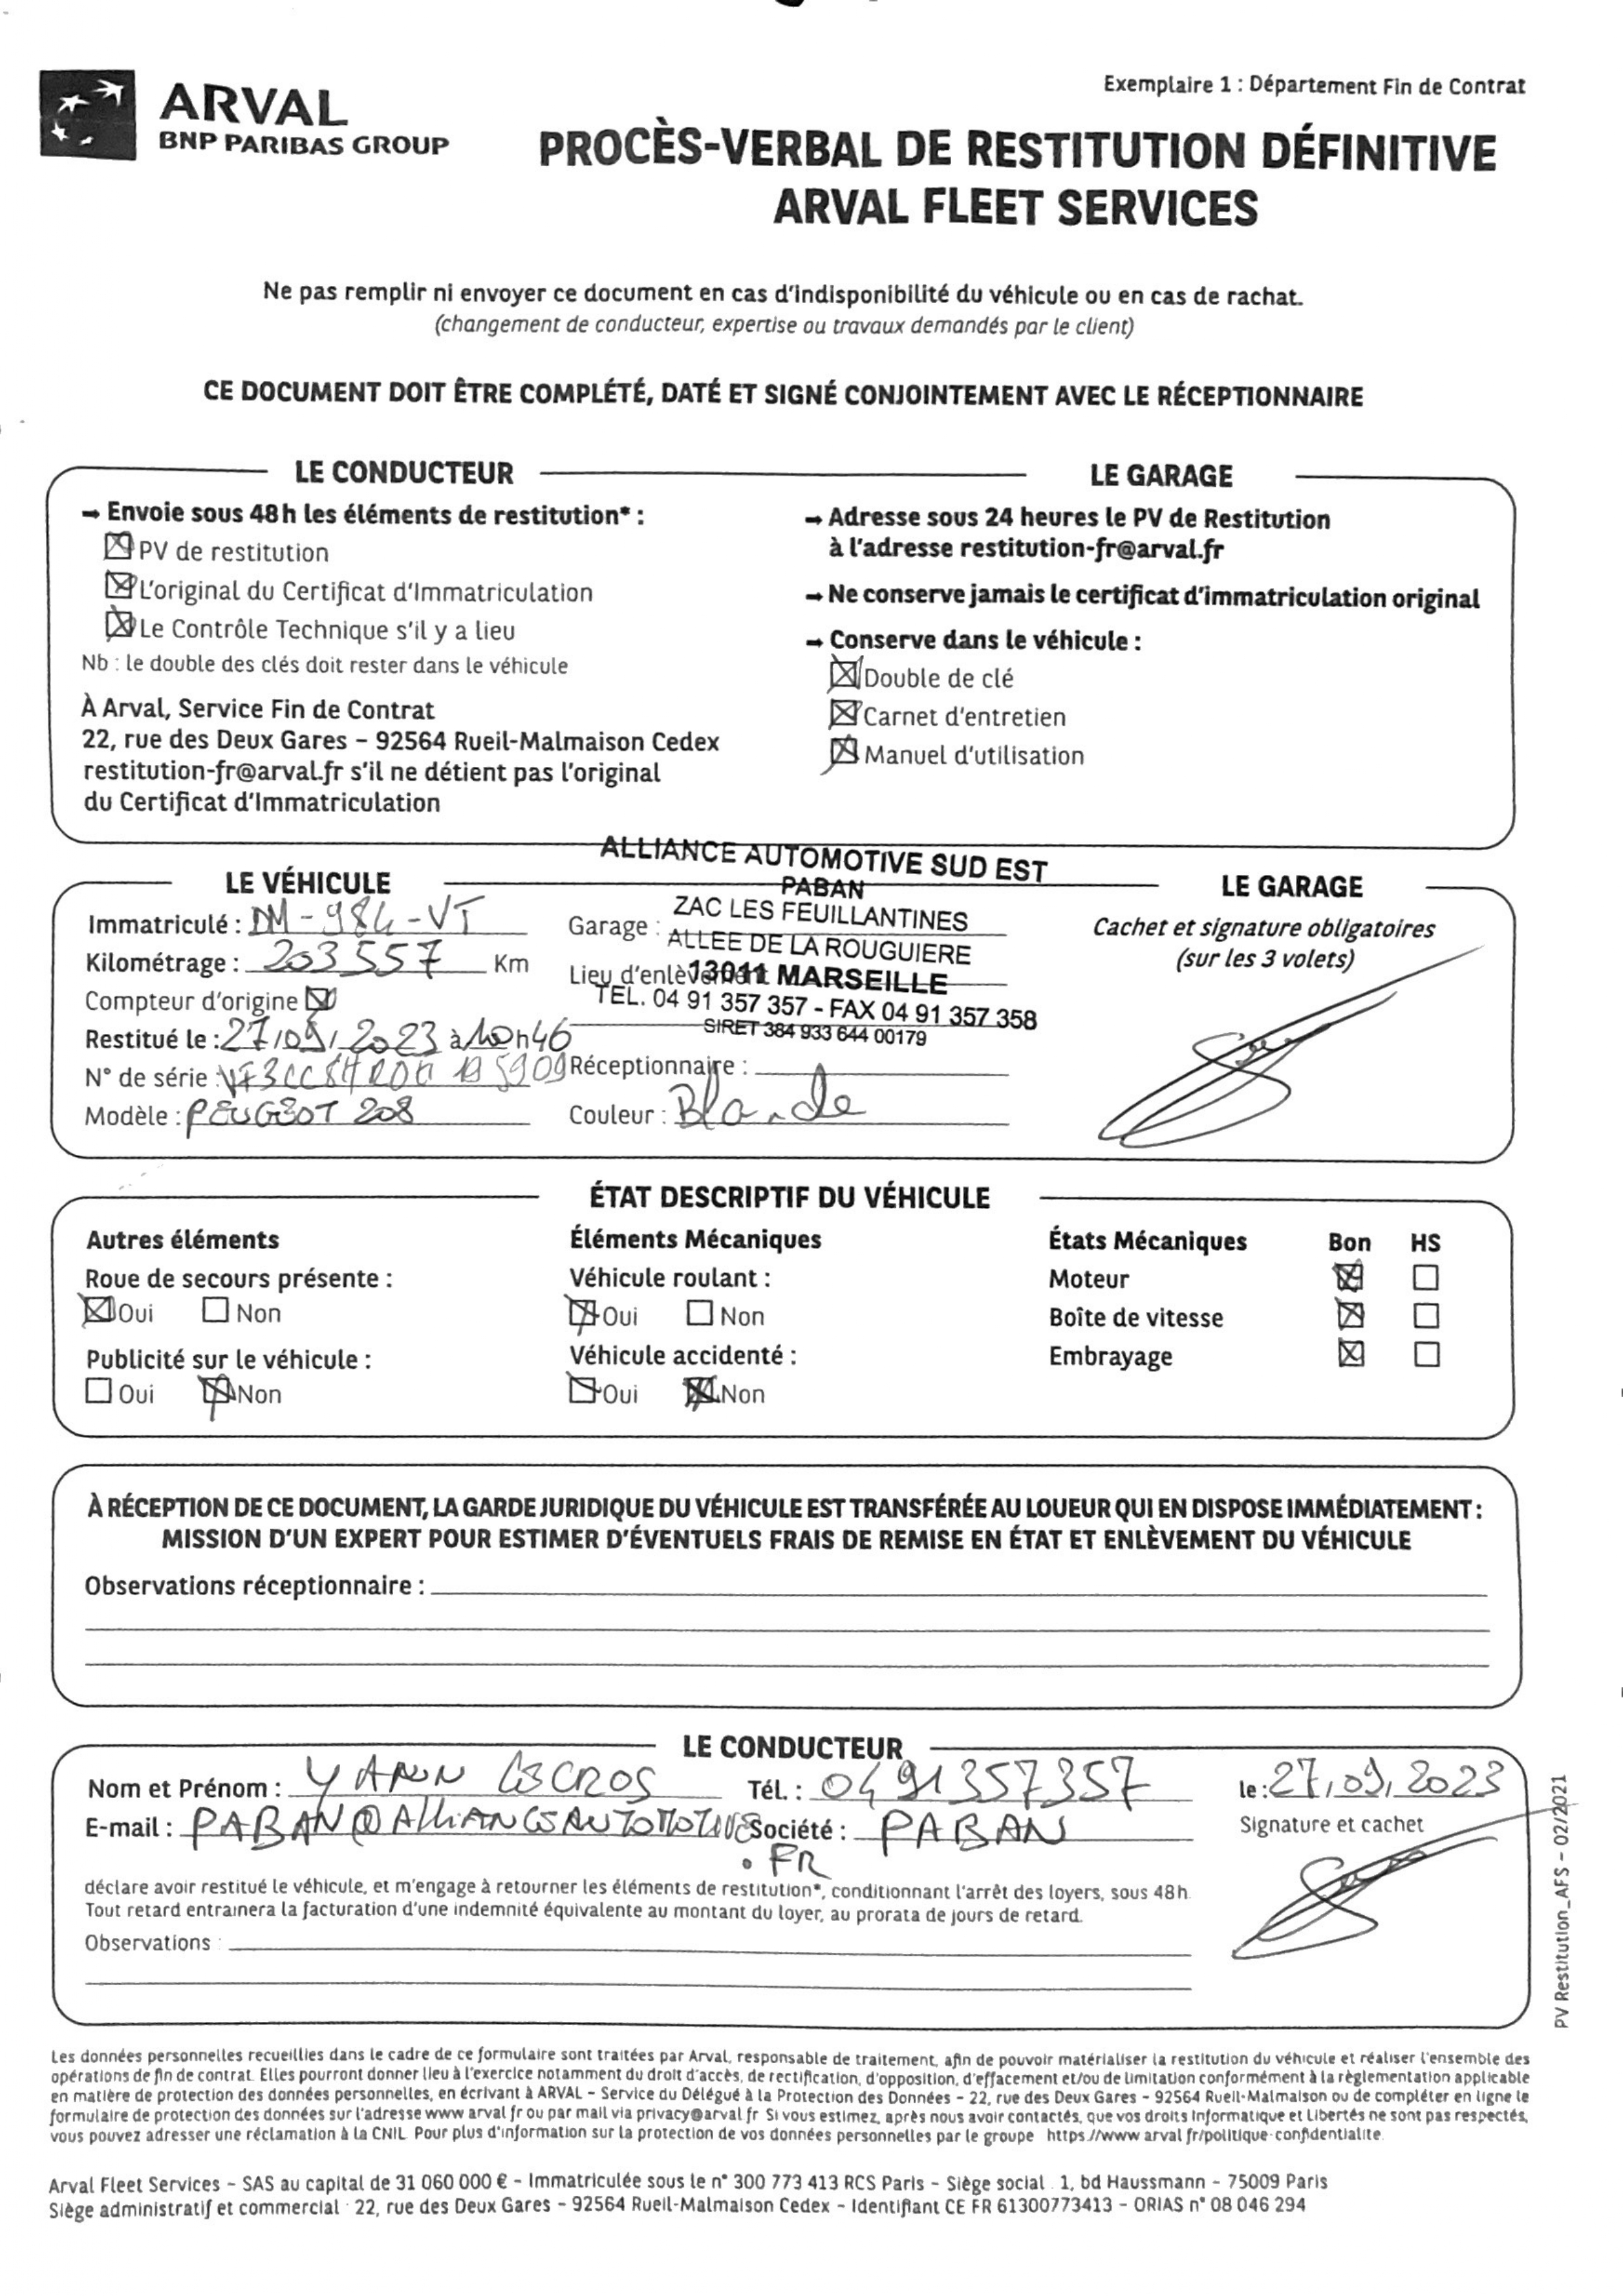 Exemplaire 1 : Département Fin de Contrat
ARVAL
BNP PARIBAS GROUP
PROCÈS-VERBAL DE RESTITUTION DÉFINITIVE
ARVAL FLEET SERVICES
Ne pas remplir ni envoyer ce document en cas d'indisponibilité du véhicule ou en cas de rachat.
(changement de conducteur, expertise ou travaux demandés par le client)
CE DOCUMENT DOIT ÊTRE COMPLÉTÉ, DATÉ ET SIGNÉ CONJOINTEMENT AVEC LE RÉCEPTIONNAIRE
LE CONDUCTEUR
→ Envoie sous 48h les éléments de restitution* :
PV de restitution
L'original du Certificat d'Immatriculation
Le Contrôle Technique s'il y a lieu
Nb : le double des clés doit rester dans le véhicule
À Arval, Service Fin de Contrat
22, rue des Deux Gares – 92564 Rueil-Malmaison Cedex
restitution-fr@arval.fr s'il ne détient pas l'original
du Certificat d'Immatriculation
LE GARAGE
→ Adresse sous 24 heures le PV de Restitution
à l'adresse restitution-fr@arval.fr
→ Ne conserve jamais le certificat d'immatriculation original
→ Conserve dans le véhicule :
Double de clé
Carnet d'entretien
Manuel d'utilisation
LE VÉHICULE
Immatriculé : DM-984-VT
Kilométrage : 203557 Km
Compteur d'origine
Restitué le : 27/09/2023 à 10h46
N° de série :
Modèle : PEUGEOT 208
ALLIANCE AUTOMOTIVE SUD EST
PABAN
ZAC LES FEUILLANTINES
Garage :
ALLEE DE LA ROUGUIERE
Lieu d'enlèvement
13011 MARSEILLE
TEL. 04 91 357 357 - FAX 04 91 357 358
SIRET 384 933 644 00179
Réceptionnaire :
Couleur : Blanche
LE GARAGE
Cachet et signature obligatoires
(sur les 3 volets)
ÉTAT DESCRIPTIF DU VÉHICULE
Autres éléments
Roue de secours présente :
Oui Non
Publicité sur le véhicule :
Oui Non
Éléments Mécaniques
Véhicule roulant :
Oui Non
Véhicule accidenté :
Oui Non
États Mécaniques Bon HS
Moteur
Boîte de vitesse
Embrayage
À RÉCEPTION DE CE DOCUMENT, LA GARDE JURIDIQUE DU VÉHICULE EST TRANSFÉRÉE AU LOUEUR QUI EN DISPOSE IMMÉDIATEMENT :
MISSION D'UN EXPERT POUR ESTIMER D'ÉVENTUELS FRAIS DE REMISE EN ÉTAT ET ENLÈVEMENT DU VÉHICULE
Observations réceptionnaire :
LE CONDUCTEUR
Nom et Prénom : YANN LESCROS Tél. : 0491357357 le : 27/09/2023
E-mail : PABAN@ALLIANCEAUTOMOTIVE Société : PABAN Signature et cachet
.FR
déclare avoir restitué le véhicule, et m'engage à retourner les éléments de restitution*, conditionnant l'arrêt des loyers, sous 48h.
Tout retard entrainera la facturation d'une indemnité équivalente au montant du loyer, au prorata de jours de retard.
Observations :
PV Restitution_AFS – 02/2021
Les données personnelles recueillies dans le cadre de ce formulaire sont traitées par Arval, responsable de traitement, afin de pouvoir matérialiser la restitution du véhicule et réaliser l'ensemble des
opérations de fin de contrat. Elles pourront donner lieu à l'exercice notamment du droit d'accès, de rectification, d'opposition, d'effacement et/ou de limitation conformément à la règlementation applicable
en matière de protection des données personnelles, en écrivant à ARVAL – Service du Délégué à la Protection des Données – 22, rue des Deux Gares – 92564 Rueil-Malmaison ou de compléter en ligne le
formulaire de protection des données sur l'adresse www.arval.fr ou par mail via privacy@arval.fr Si vous estimez, après nous avoir contactés, que vos droits Informatique et Libertés ne sont pas respectés,
vous pouvez adresser une réclamation à la CNIL. Pour plus d'information sur la protection de vos données personnelles par le groupe https://www.arval.fr/politique-confidentialite.
Arval Fleet Services – SAS au capital de 31 060 000 € – Immatriculée sous le n° 300 773 413 RCS Paris – Siège social : 1, bd Haussmann – 75009 Paris
Siège administratif et commercial : 22, rue des Deux Gares – 92564 Rueil-Malmaison Cedex – Identifiant CE FR 61300773413 – ORIAS n° 08 046 294